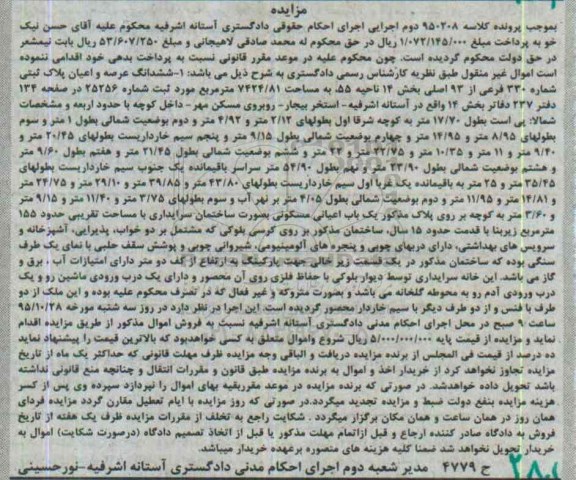 مزایده
بموجب پرونده کلاسه ۹۵۰۲۰۸ دوم اجرایی اجرای احکام حقوقی دادگستری آستانه اشرفیه محکوم علیه آقای حسن نیک
خو به پرداخت مبلغ ۱/۰۷۲/۱۴۵/۰۰۰ ریال در حق محکوم له محمد صادقی لاهیجانی و مبلغ ۵۳/۶۰۷/۲۵۰ ریال بابت نیمعشر
در حق دولت محکوم گردیده است. چون محکوم علیه در موعد مقرر قانونی نسبت به پرداخت بدهی خود اقدامی ننموده
است اموال غیر منقول طبق نظریه کارشناس رسمی دادگستری به شرح ذیل می باشد: ۱-ششدانگ عرصه و اعیان پلاک ثبتی
شماره ۳۳۰ فرعی از ۹۳ اصلی بخش ۱۴ ناحیه ۵۵، به مساحت ۷۴۲۴/۸۱ مترمربع مورد ثبت شماره ۲۵۲۵۶ در صفحه ۱۳۴
دفتر ۲۳۷ دفاتر بخش ۱۴ واقع در آستانه اشرفیه- استخر بیجار- روبروی مسکن مهر- داخل کوچه با حدود اربعه و مشخصات
شمالا: پی است بطول ۱۷/۷۰ متر به کوچه شرقا اول بطولهای ۳/۱۲ متر و ۴/۹۲ متر و دوم بوضعیت شمالی بطول ۱ متر و سوم
بطولهای ۸/۹۵ متر و ۱۴/۹۵ متر و چهارم بوضعیت شمالی بطول ۹/۱۵ متر و پنجم سیم خارداریست بطولهای ۲۰/۴۵ متر و
۹/۴۰ متر و ۱۱ متر و ۱۰/۳۵ متر و ۳۲/۷۵ متر و ششم بوضعیت شمالی بطول ۲۱/۴۵ متر و هفتم بطول ۹/۶۰ متر
و هشتم بوضعیت شمالی بطول ۲۳/۹۰ متر و نهم بطول ۵۴/۹۰ متر سراسر باقیمانده یک جنوب سیم خارداریست بطولهای
۳۵/۴۵ متر و ۲۵ متر به باقیمانده یک غربا اول سیم خارداریست بطولهای ۴۳/۸۰ متر و ۳۹/۸۵ متر و ۲۹/۱۰ متر و ۲۴/۷۵ متر
و ۱۴/۸۱ متر و ۱۱/۹۵ متر و دوم بوضعیت شمالی بطول ۴/۰۵ متر بر نهر آب و سوم بطولهای ۳/۷۵ متر و ۱۱/۴۰ متر و ۹/۱۵ متر
و ۳/۶۰ متر به کوچه بر روی پلاک مذکور یک باب اعیانی مسکونی بصورت ساختمان سرایداری با مساحت تقریبی حدود ۱۵۵
مترمربع زیربنا با قدمت حدود ۱۵ سال، ساختمان مذکور بر روی کرسی بلوکی که مشتمل بر دو خواب، پذیرایی، آشپزخانه و
سرویس های بهداشتی، دارای دربهای چوبی و پنجره های آلومینیومی، شیروانی چوبی و پوشش سقف حلبی با نمای یک طرف
سنگی بوده که ساختمان مذکور در یک قسمت زیر خالی جهت پارکینگ به ارتفاع از کف دو متر دارای امتیازات آب، برق و
گاز می باشد. این خانه سرایداری توسط دیوار بلوکی با حفاظ فلزی روی آن محصور و دارای یک درب ورودی ماشین رو و یک
درب ورودی آدم رو به محوطه گلخانه می باشد و بصورت متروکه و غیر فعال که در تصرف محکوم علیه بوده و این ملک از دو
طرف با فنس و از دو طرف دیگر با سیم خاردار محصور گردیده است. این اجرا در نظر دارد در روز سه شنبه مورخه ۹۵/۱۰/۲۸
ساعت ۹ صبح در محل اجرای احکام مدنی دادگستری آستانه اشرفیه نسبت به فروش اموال مذکور از طریق مزایده اقدام
نماید و مزایده از قیمت پایه ۵/۰۰۰/۰۰۰/۰۰۰ ریال شروع واموال متعلق به کسی خواهدبود که بالاترین قیمت را پیشنهاد نماید
ده درصد از قیمت فی المجلس از برنده مزایده دریافت و الباقی وجه مزایده ظرف مهلت قانونی که حداکثر یک ماه از تاریخ
مزایده تجاوز نخواهد کرد از خریدار اخذ و اموال به برنده مزایده طبق قانون و مقررات انتقال و چنانچه منع قانونی نداشته
باشد تحویل داده خواهدشد. در صورتی که برنده مزایده در موعد مقرربقیه بهای اموال را نپردازد سپرده وی پس از کسر
هزینه مزایده بنفع دولت ضبط و مزایده تجدید میگردد.در صورتی که روز مزایده با ایام تعطیل مقارن گردد مزایده فردای
همان روز در همان ساعت و همان مکان برگزار میگردد . شکایت راجع به تخلف از مقررات مزایده ظرف یک هفته از تاریخ
فروش به دادگاه صادر کننده ارجاع و قبل ازاتمام مهلت مذکور یا قبل از اتخاذ تصمیم دادگاه (درصورت شکایت) اموال به
خریدار تحویل نخواهد شد ضمنا کلیه هزینه های منصوره برعهده خریدار میباشد.
ح ۴۷۷۹ مدیر شعبه دوم اجرای احکام مدنی دادگستری آستانه اشرفیه-نورحسینی